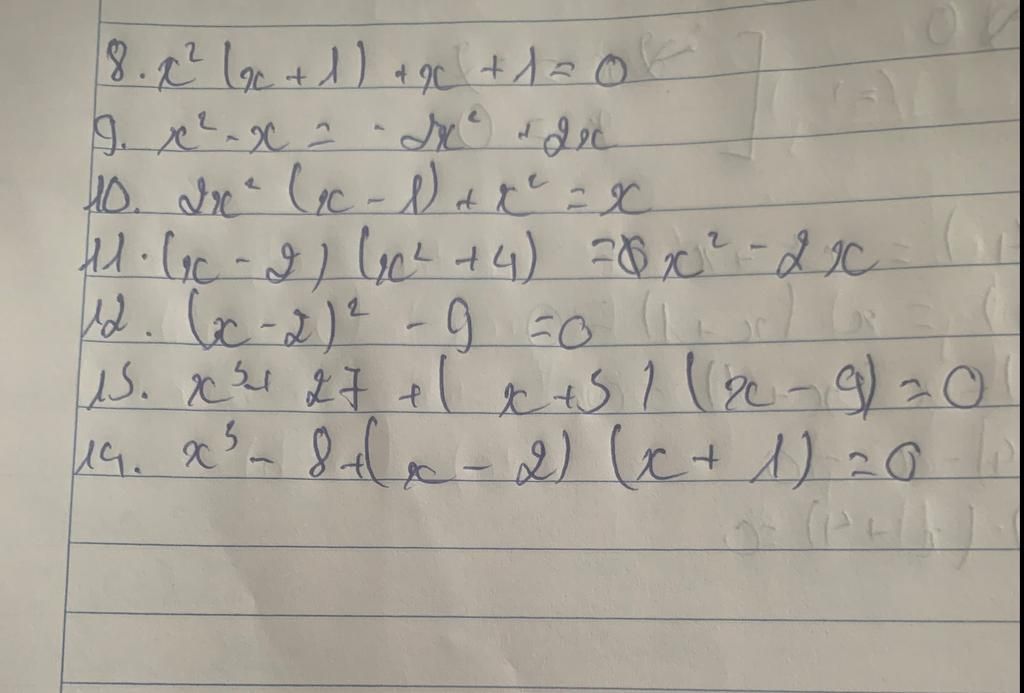 8. x² (x + 1) + x + 1 = 0
9. x² - x = - 2x² + 2x
10. 2x² (x - 1) + x² = x
11. (x - 2) (x² + 4) = x² - 2x
12. (x - 2)² - 9 = 0
13. x³ + 27 + ( x + 3 ) (x - 9) = 0
14. x³ - 8 + (x - 2) (x + 1) = 0